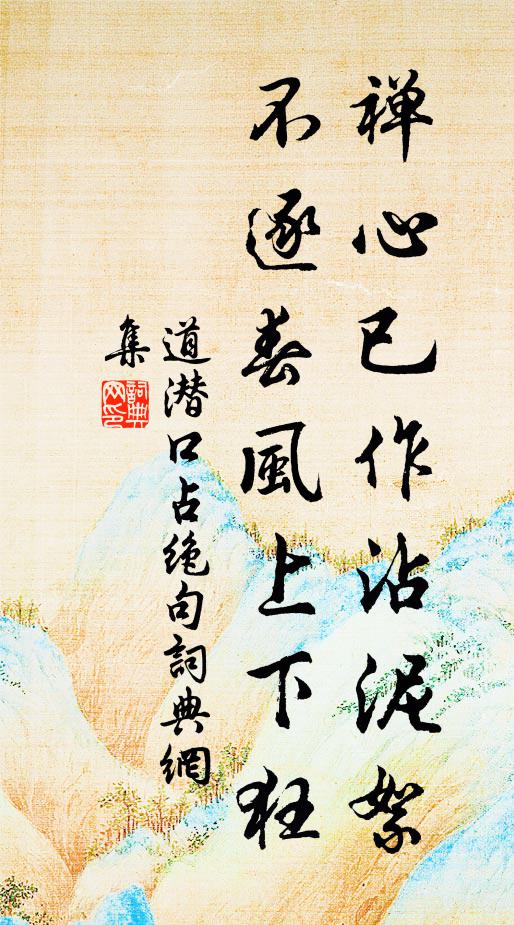 禅心已作沾泥絮
不逐春風上下狂
道潜口占绝句詞典網
集
詞典網印